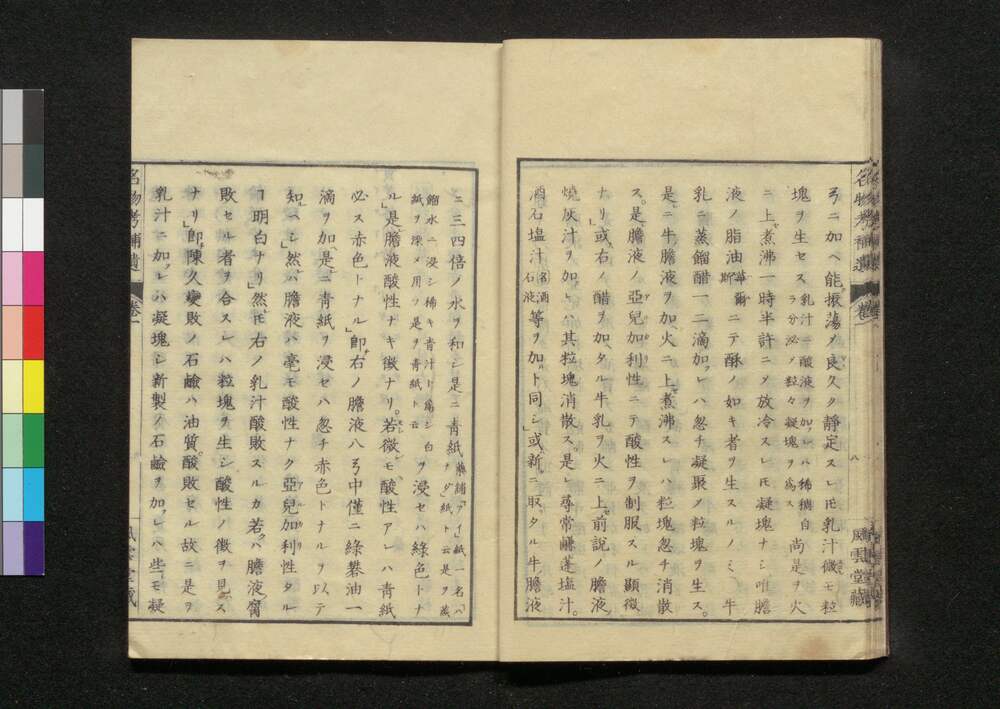 弓ニ加ヘ能振蕩〆良久ク靜定スレ𪜈乳汁微モ粒
塊ヲ生セス乳汁ニ酸液ヲ加レハ稀稠自ラ分泌〆粒々凝塊ヲ為ス尚是ヲ火
ニ上煮沸一時半許ニ〆放冷スレ𪜈凝塊ナシ唯膽
液ノ脂油ニテ酥ノ如キ者ヲ生スルノミ、牛
乳ニ蒸餾醋一二滴加レハ忽チ凝聚〆粒塊ヲ生ス。
是ニ牛膽液ヲ加ヘ火ニ上煮沸スレハ粒塊忽チ消散
ス。是膽液ノ亞兒加利性ニテ酸性ヲ制服スル顯徴
ナリ」或右ノ醋ヲ加タル牛乳ヲ火ニ上。前說ノ膽液
燒灰汁ヲ加レハ其粒塊消散ス。是レ尋常鹻蓬塩汁。
酒石塩汁名酒石液等ヲ加ト同シ」或新ニ取タル牛膽液
風雲堂藏
名物考補遺 卷一
ニ三四倍ノ水ヲ和シ是ニ青紙藥鋪「アイ」紙一名「ハナダ」紙ト云是ヲ蒸
餾水ニ浸シ稀キ青汁ト爲シ白紙ヲ染メ用ソ是ヲ青紙ト云ヲ浸セハ綠色トナ
ル」是膽液酸性ナキ徴ナリ。若微モ酸性アレハ青紙
必ス赤色トナル」卽右ノ膽液八弓中僅ニ綠礬油一
滴ヲ加是ニ青紙ヲ浸セハ忽チ赤色トナルヲ以テ
知ヘシ」然ハ膽液ハ毫モ酸性ナク亞兒加利性タル
ヿ明白ナリ」然𪜈右ノ乳汁酸敗スルカ若ハ膽液腐
敗セル者ヲ合スレハ粒塊ヲ生シ酸性ノ徴ヲ見ス
ナリ」卽陳久變敗ノ石鹼ハ油質酸敗セル故ニ是ヲ
乳汁ニ加レハ凝塊シ新製ノ石鹼ヲ加レハ些モ凝